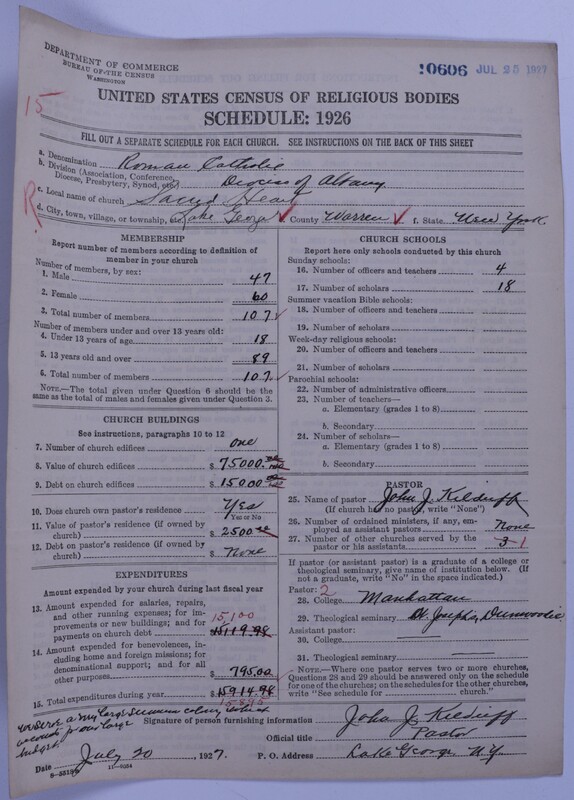 DEPARTMENT OF COMMERCE
BUREAU OF THE CENSUS
WASHINGTON
10606 JUL 25 1927
15
UNITED STATES CENSUS OF RELIGIOUS BODIES
SCHEDULE: 1926
FILL OUT A SEPARATE SCHEDULE FOR EACH CHURCH. SEE INSTRUCTIONS ON THE BACK OF THIS SHEET
a. Denomination Roman Catholic
b. Division (Association, Conference, Diocese, Presbytery, Synod, etc.) Diocese of Albany
c. Local name of church Sacred Heart
R
d. City, town, village, or township, etc. Lake George County Warren f. State New York
MEMBERSHIP
Report number of members according to definition of
member in your church
Number of members, by sex:
1. Male 47
2. Female 60
3. Total number of members 107
Number of members under and over 13 years old:
4. Under 13 years of age 18
5. 13 years old and over 89
6. Total number of members 107
NOTE.—The total given under Question 6 should be the
same as the total of males and females given under Question 3.
CHURCH BUILDINGS
See instructions, paragraphs 10 to 12
7. Number of church edifices one
8. Value of church edifices $ 75000.
9. Debt on church edifices $ 15000
10. Does church own pastor's residence Yes
Yes or No
11. Value of pastor's residence (if owned by
church) $ 2500
12. Debt on pastor's residence (if owned by
church) $ None
EXPENDITURES
Amount expended by your church during last fiscal year
13. Amount expended for salaries, repairs,
and other running expenses; for im-
provements or new buildings; and for
payments on church debt 15,100 $ 15119.98
14. Amount expended for benevolences, in-
cluding home and foreign missions; for
denominational support; and for all
other purposes $ 795.00
15. Total expenditures during year $ 15914.98
15895
CHURCH SCHOOLS
Report here only schools conducted by this church
Sunday schools:
16. Number of officers and teachers 4
17. Number of scholars 18
Summer vacation Bible schools:
18. Number of officers and teachers
19. Number of scholars
Week-day religious schools:
20. Number of officers and teachers
21. Number of scholars
Parochial schools:
22. Number of administrative officers
23. Number of teachers—
a. Elementary (grades 1 to 8)
b. Secondary
24. Number of scholars—
a. Elementary (grades 1 to 8)
b. Secondary
PASTOR
25. Name of pastor John J. Kilduff
(If church has no pastor, write "None")
26. Number of ordained ministers, if any, em-
ployed as assistant pastors None
27. Number of other churches served by the
pastor or his assistants 3 1
If pastor (or assistant pastor) is a graduate of a college or
theological seminary, give name of institution below. (If
not a graduate, write "No" in the space indicated.)
Pastor: 2
28. College Manhattan
29. Theological seminary St. Josephs, Dunwoodie
Assistant pastor:
30. College
31. Theological seminary
NOTE.—Where one pastor serves two or more churches,
Questions 28 and 29 should be answered only on the schedule
for one of the churches; on the schedules for the other churches,
write "See schedule for church."
a very large summer colony
large
budget
Signature of person furnishing information John J. Kilduff
Official title Pastor
Date July 20, 1927. P. O. Address Lake George N.Y.